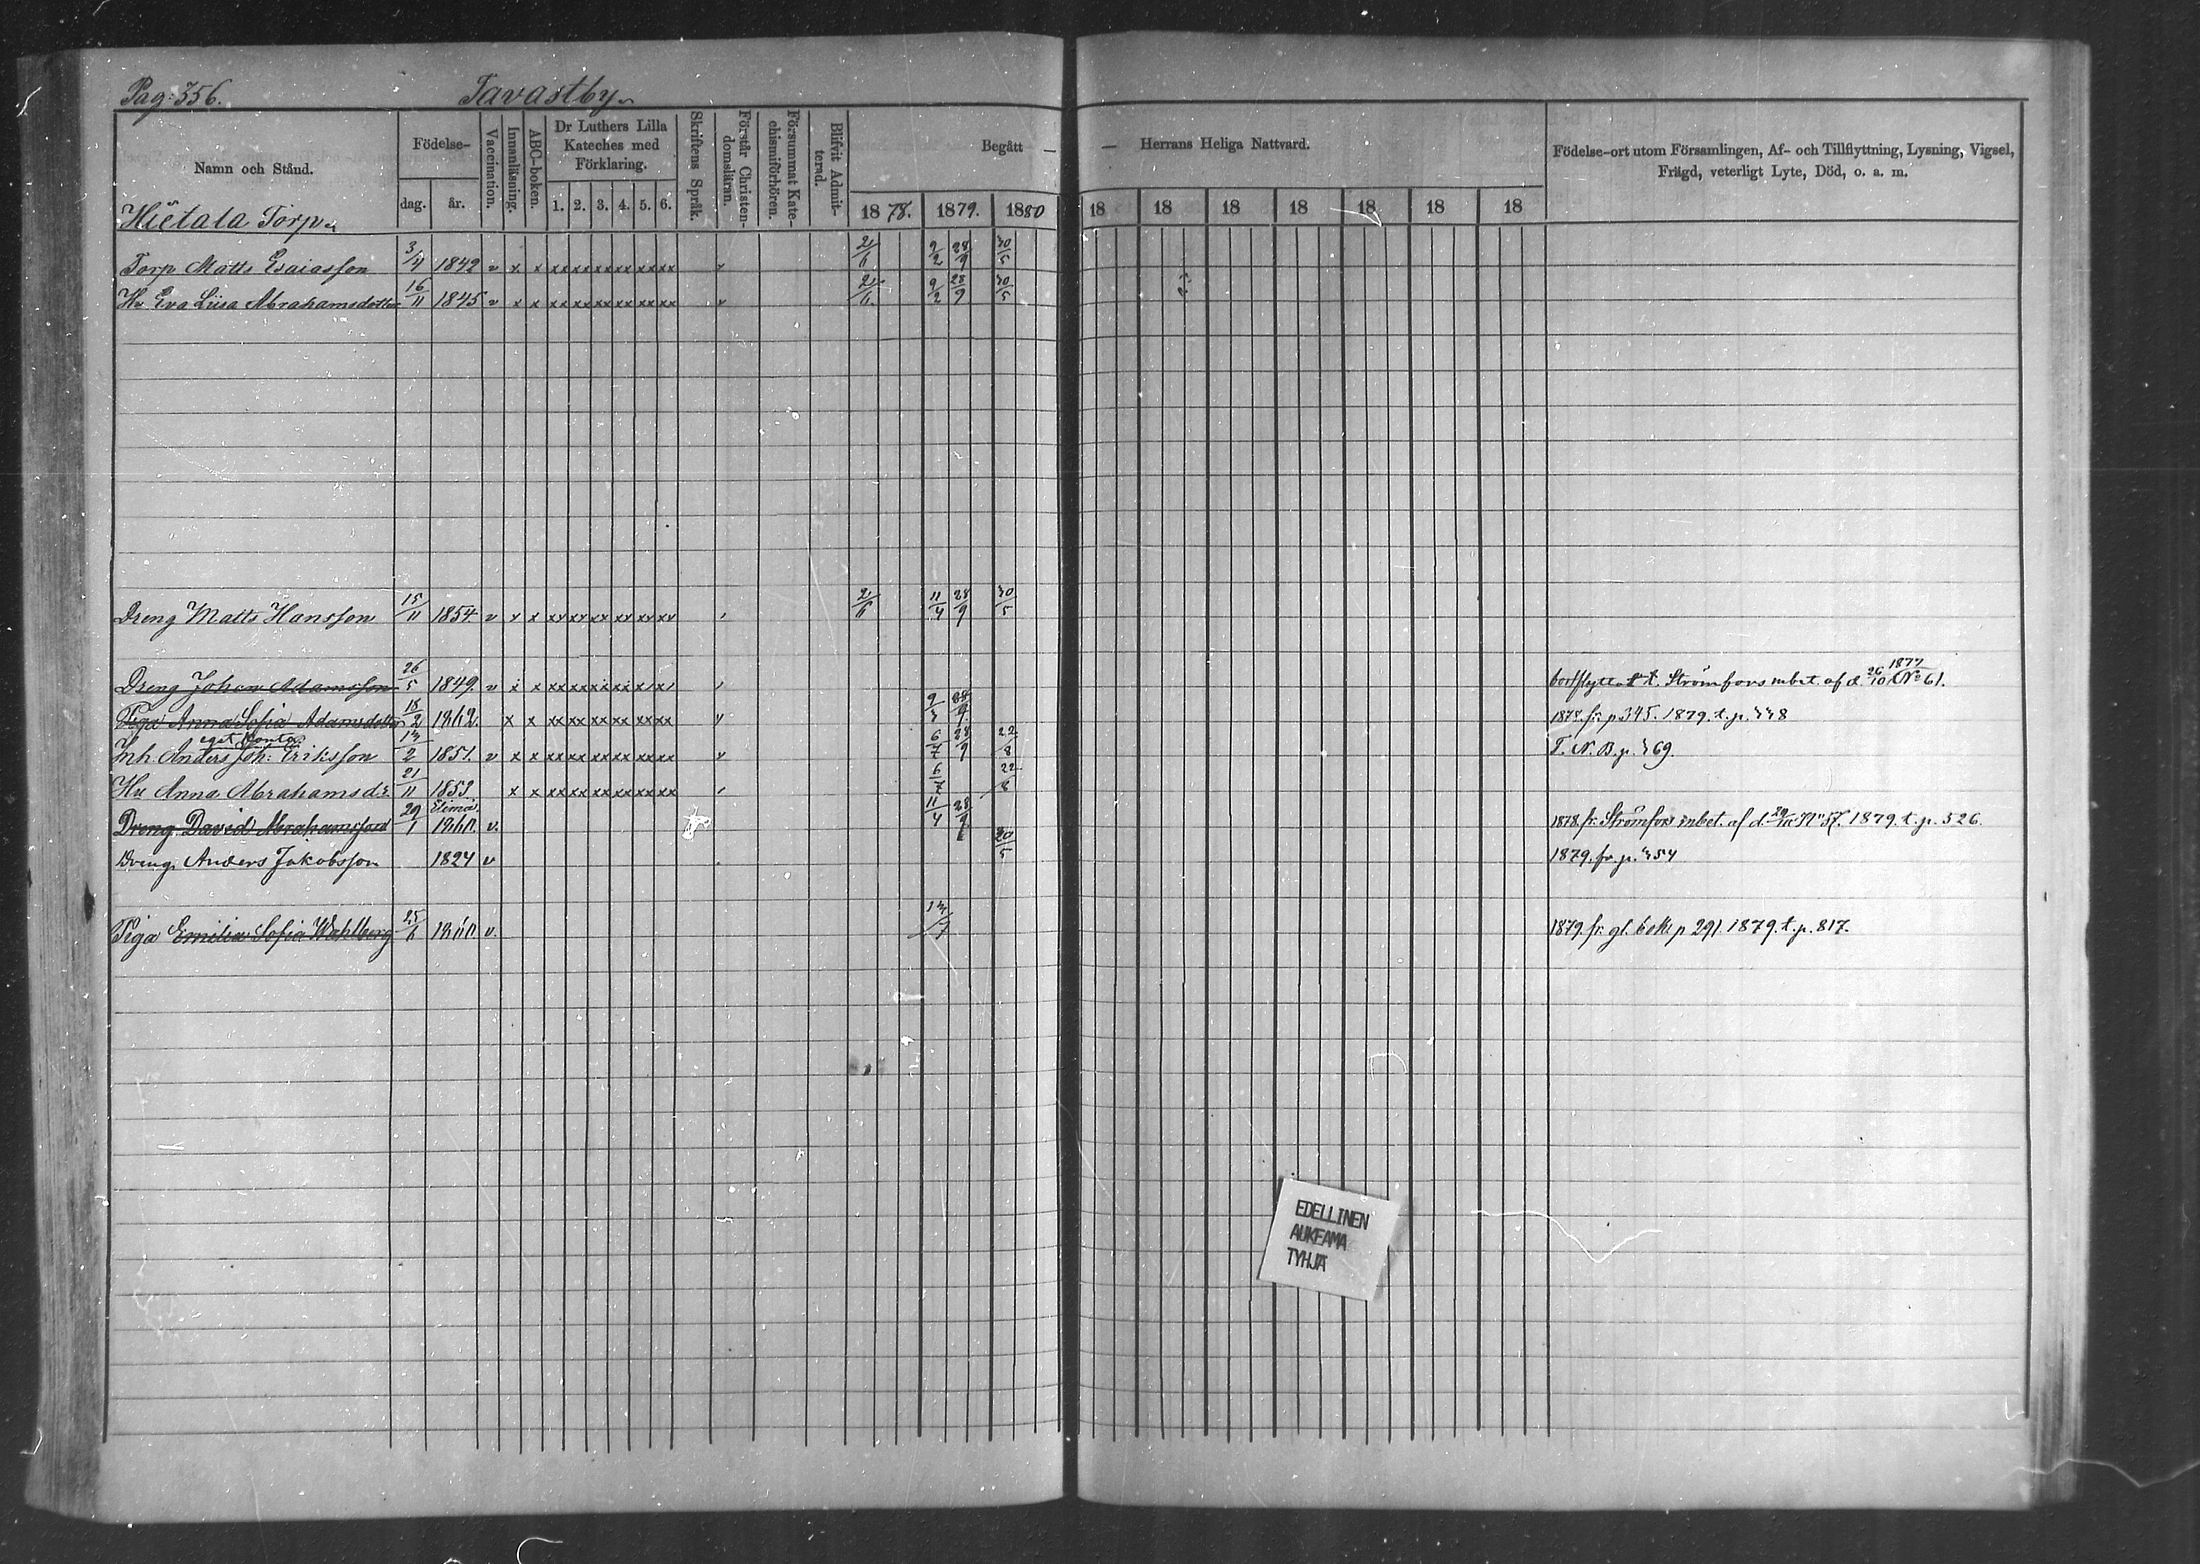 Pag: 356. Tavastby
Namn och Stånd. Födelse- dag. år. Vaccination. Innanläsning. ABC-boken. Dr Luthers Lilla Kateches med Förklaring. 1. 2. 3. 4. 5. 6. Skriftens Språk. Förstår Christendomsläran. Försummat Katechismiförhören. Blifvit Admitterad. Begått — — Herrans Heliga Nattvard. Födelse-ort utom Församlingen, Af- och Tillflyttning, Lysning, Vigsel, Frägd, veterligt Lyte, Död, o. a. m.
1878. 1879. 1880 18 18 18 18 18 18 18
Hietala Torp
Torp Matts Esaiasson 3/4 1842 v x x xx xx xx xx xx xx v 2/6 9/2 28/9 30/5
Hu Eva Lisa Abrahamsdotter 16/11 1845 v x x xx xx xx xx xx xx v 2/6 9/2 28/9 30/5
Dreng Matts Hansson 15/11 1854 v x x xx xx xx xx xx xx 2/6 11/4 28/9 30/5
Dreng Johan Adamsson 26/5 1849. v x x xx xx xx xx xx bortflyttat t. Strömfors mbet. af d. 26/10 1877 No 61.
Piga Anna Sofia Adamsdotter 18/2 1862. x x xx xx xx xx xx xx v 28/9 1878. fr. p 345. 1879. t. p. 338
eget konto
Inh. Anders Joh: Eriksson 13/2 1851. v x x xx xx xx xx xx xx v 6/7 28/9 22/8 T. N. B. p. 369.
Hu Anna Abrahamsd:r 21/11 1853 x x xx xx xx xx xx xx 6/7 22/8
Elimä
Dreng David Abrahamsson 29/1 1860. v. 11/4 28/9 1878. fr. Strömfors mbet. af d. No 57. 1879. t. p. 526.
Dreng Anders Jakobsson 1824 v 30/5 1879. fr. p. 354
Piga Emilia Sofia Wahlberg 25/6 1860 v. 13/7 1879. fr. gl. bok p 291. 1879. t. p. 817.
EDELLINEN
AUKEAMA
TYHJÄ